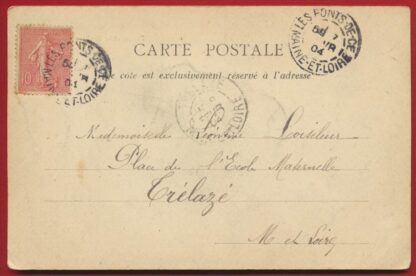 LES PONTS-DE-CÉ
MAINE-ET-LOIRE
04
CARTE POSTALE
LES PONTS-DE-CÉ
MAINE-ET-LOIRE
04
10
Ce côté est exclusivement réservé à l'adresse
Mademoiselle Léontine Loiseleur
Place de l'Ecole Maternelle
Trélazé
M et Loire